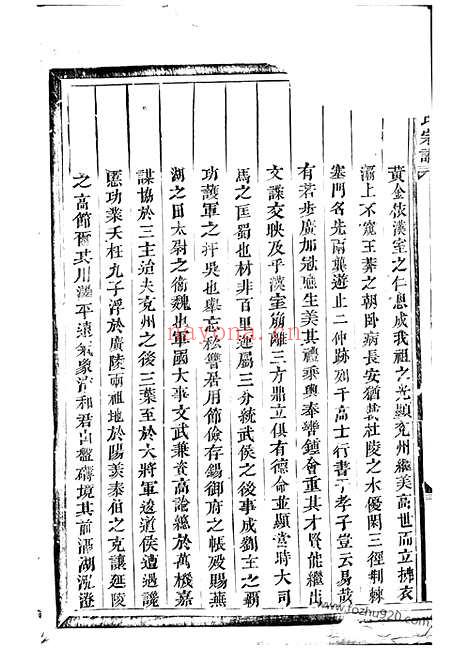 氏宗譜
黃金依漢室之仁恩成我祖之光顯兗州繼美高世而立拂衣
灞上不窺王莽之朝卧病長安猶哉杜陵之水優閑三徑荆棘
塞門名先兩龔遊止二仲跡列千高士行書于孝子豈云易哉
有若步廣加冠應生美其禮乘輿奉轡鍾會重其才賢能繼出
文諜交映及乎漢室崩離三方鼎立俱有德命並顯當時大司
馬之匡蜀也材非百里地屬三分統武侯之後事成劉主之覇
功護軍之扞吳也舉忘私讐居用節儉存錫御府之帳歿賜蕪
湖之田太尉之衛魏也軍國大事文武兼資高論總於萬機嘉
謀協於三主迨夫兗州之後三葉至於大將軍逡道侯遭遇讒
慝功業夭枉九子浮於廣陵兩祖地於陽羨泰伯之克讓延陵
之高節爾其川澤平遠氣象清和君山盤礴境其前滆湖泓澄
nayona.cn
www.tozhu920.com